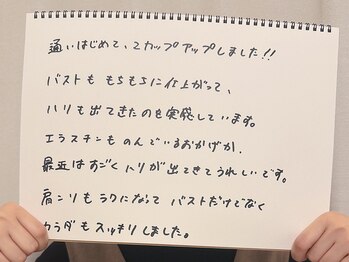 通いはじめて、2カップアップしました!!
バストも もちもちに仕上がって、
ハリも出てきたのも実感しています。
エラスチンものんでいるおかげか、
最近はすごくハリが出てきてうれしいです。
肩こりもラクになって バストだけでなく
カラダもスッキリしました。